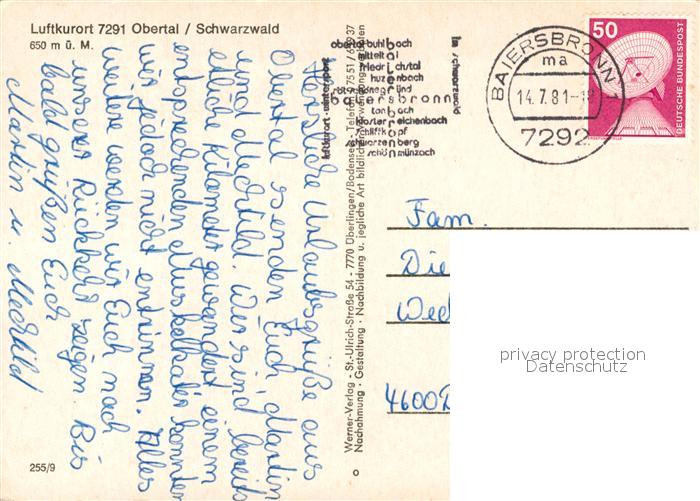 Luftkurort 7291 Obertal / Schwarzwald
650 m ü. M.
Herzliche Urlaubsgrüße aus
Obertal senden Euch Martin
und Mechtild. Wir sind bereits
etliche Kilometer gewandert einem
entsprechenden Muskelkater konnten
wir jedoch nicht entrinnen. Alles
weitere werden wir Euch nach
unserer Rückkehr zeigen. Bis
bald grüßen Euch
Martin u. Mechtild
255/9
Werner-Verlag - St.-Ulrich-Straße 54 - 7770 Überlingen/Bodensee - Telefon 07551/
Nachahmung · Gestaltung · Nachbildung u. jegliche Art bildlicher Verwendung verboten
luftkurort · wintersport
obertal buhlbach
mitteltal
friedrichstal
huzenbach
baiersbronn
tonbach
kloster reichenbach
schliffkopf
schwarzenberg
schönmünzach
im schwarzwald
BAIERSBRONN 1
ma
14.7.81-18
7292
50
DEUTSCHE BUNDESPOST
Fam.
Die
4600 D
privacy protection
Datenschutz